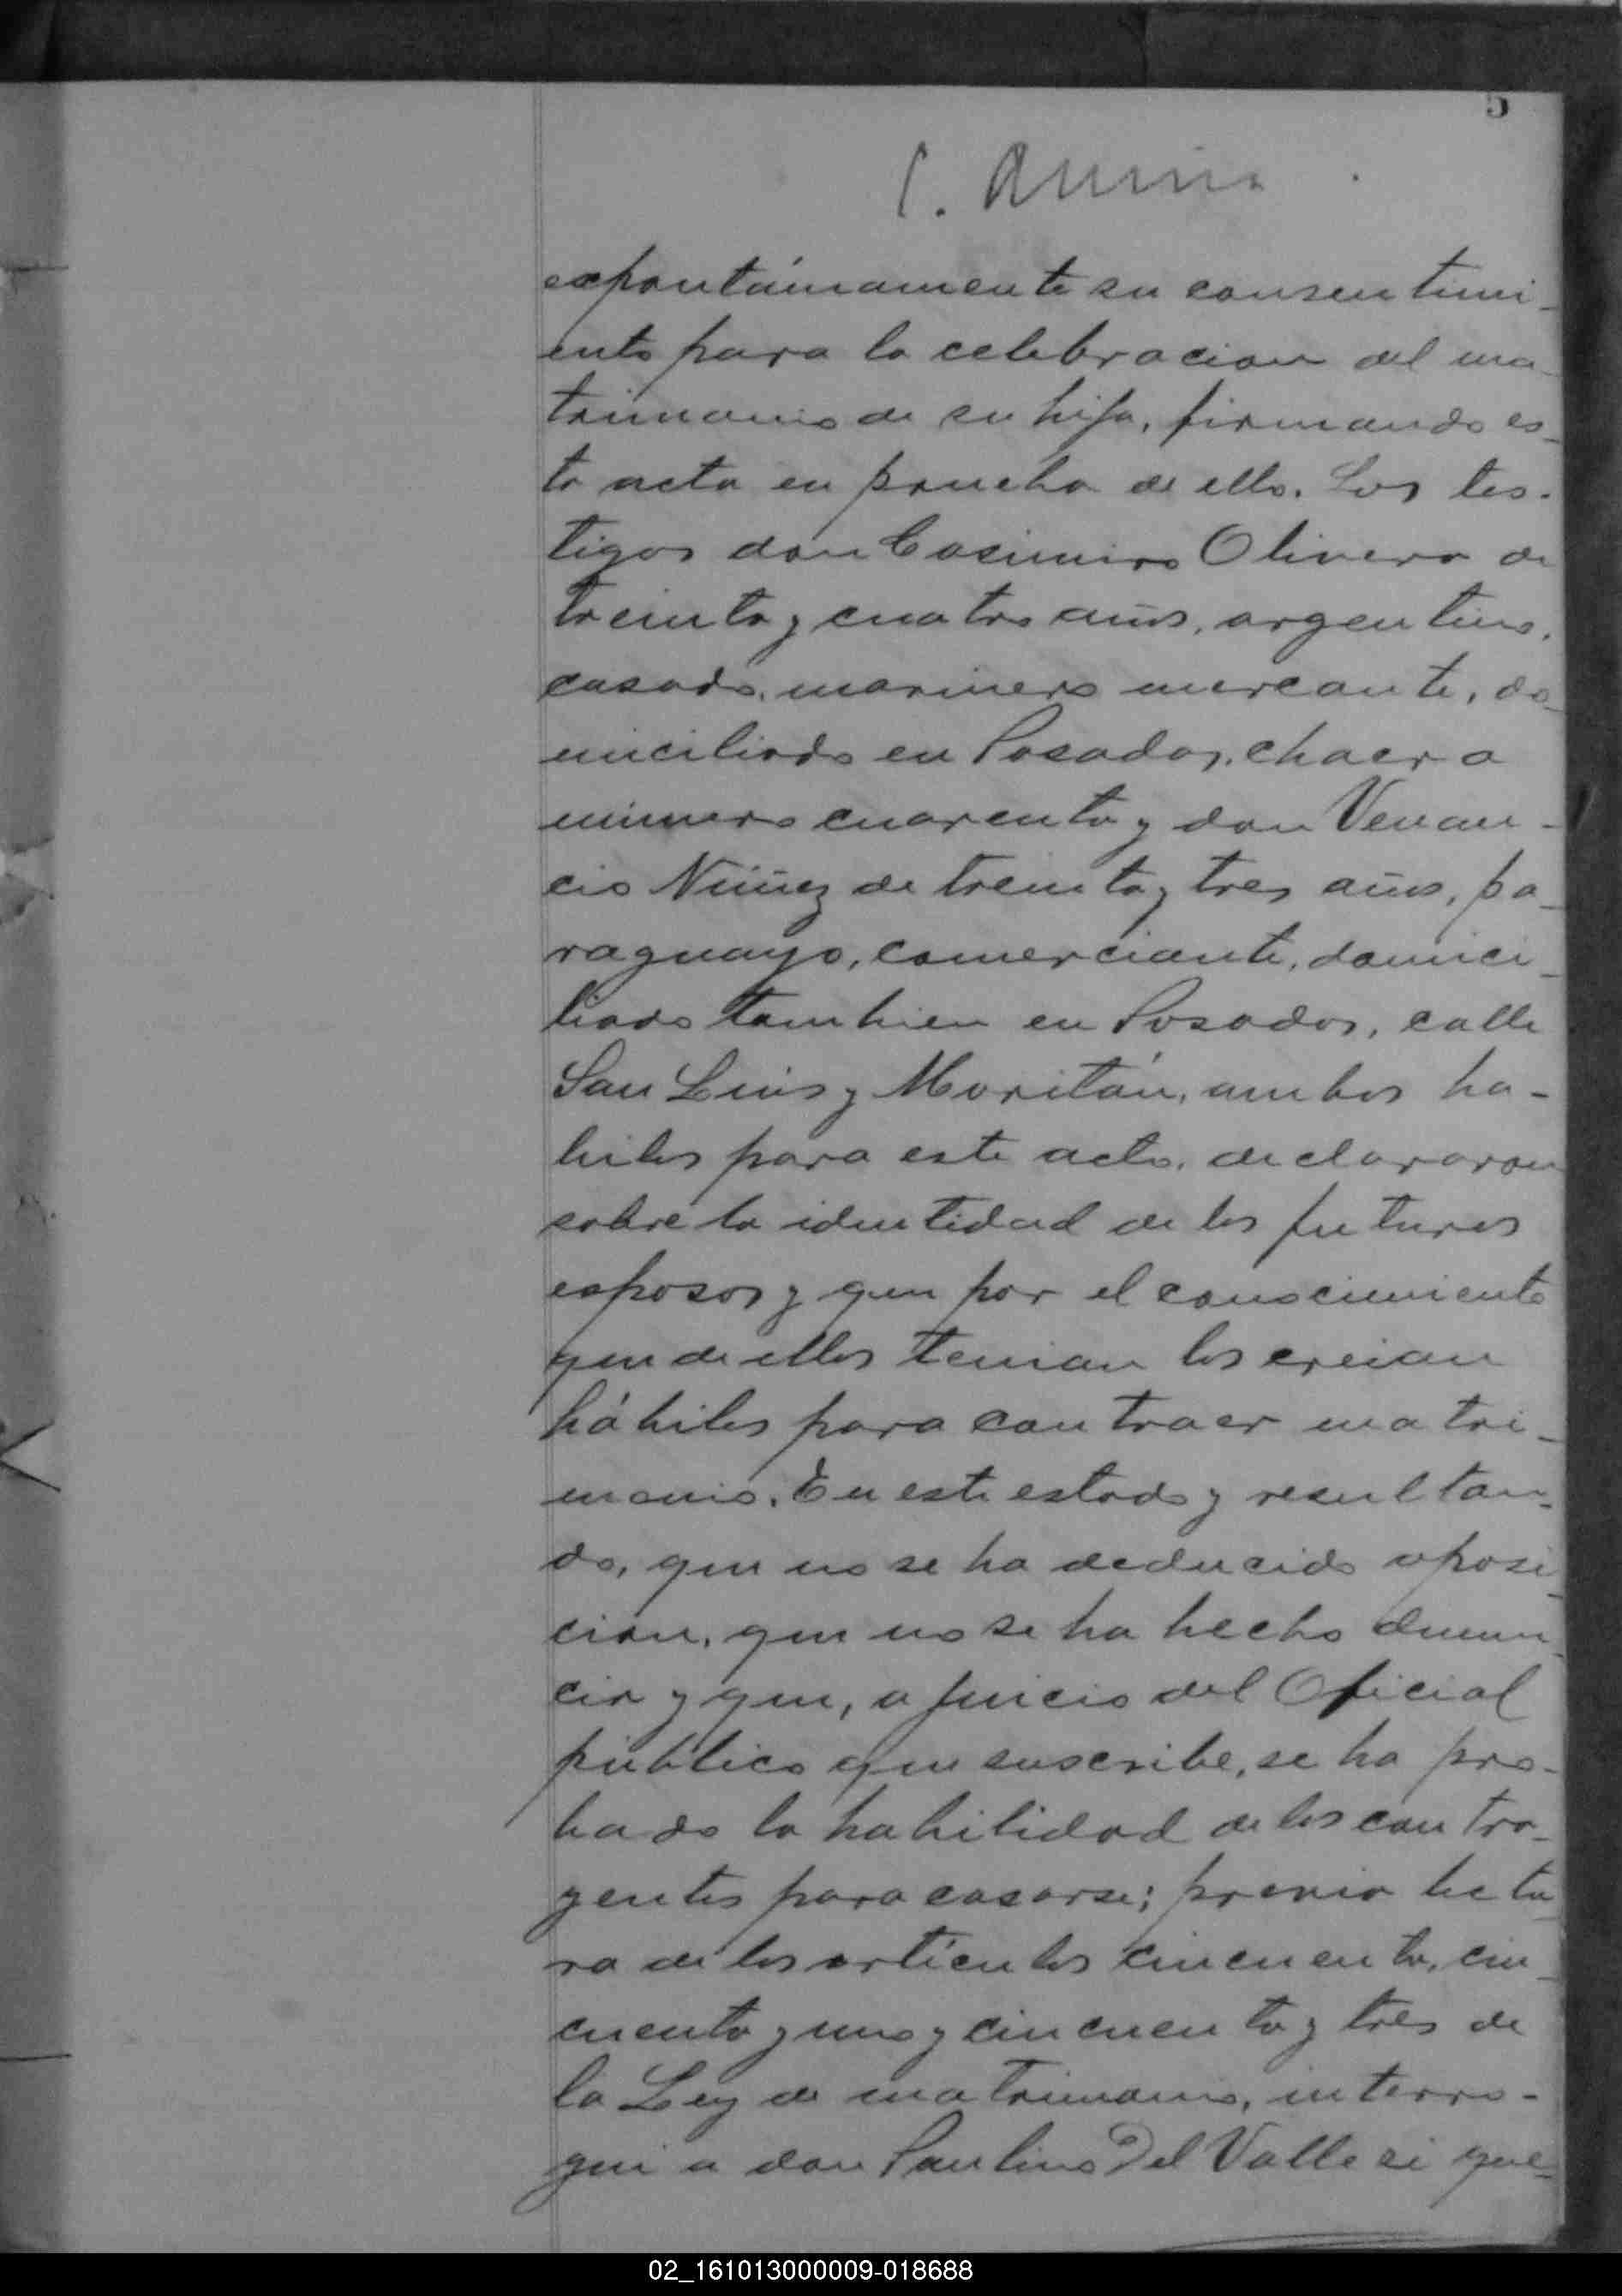 5
expontáinamente su consentimi-
ento para la celebracion del ma-
trimonio de su hija, firmando es-
ta acta en prueba de ello. Los tes-
tigos don Casimiro Olivera de
treinta y cuatro años, argentino,
casado, marinero mercante, do-
miciliado en Posadas, chacra
número cuarenta y don Venan-
cio Núñez de treinta y tres años, pa-
raguayo, comerciante, domici-
liado tambien en Posadas, calle
San Luis y Moritán, ambos ha-
biles para este acto, declararon
sobre la identidad de los futuros
esposos y que por el conocimiento
que de ellos tenian los creian
hábiles para contraer matri-
monio. En este estado y resultan-
do, que no se ha deducido oposi-
cion, que no se ha hecho denun-
cia y que, a juicio del Oficial
público que suscribe, se ha pro-
bado la habilidad de los contra-
yentes para casarse; previa lectu-
ra de los artículos cincuenta, cin-
cuenta y uno y cincuenta y tres de
la Ley de matrimonio, interro-
gué a don Paulino Del Valle si que-
02_161013000009-018688